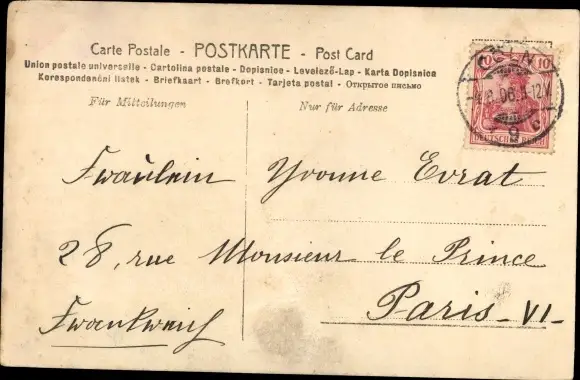 Carte Postale - POSTKARTE - Post Card
Union postale universelle - Cartolina postale - Dopisnice - Levelező-Lap - Karta Dopisnica
Korespondenční lístek - Briefkaart - Brefkort - Tarjeta postal - Открытое письмо
Für Mitteilungen
Nur für Adresse
10 10
CÖLN
DEUTSCHES REICH
Fräulein Yvonne Evrat
28, rue Monsieur le Prince
Paris - VI -
Frankreich